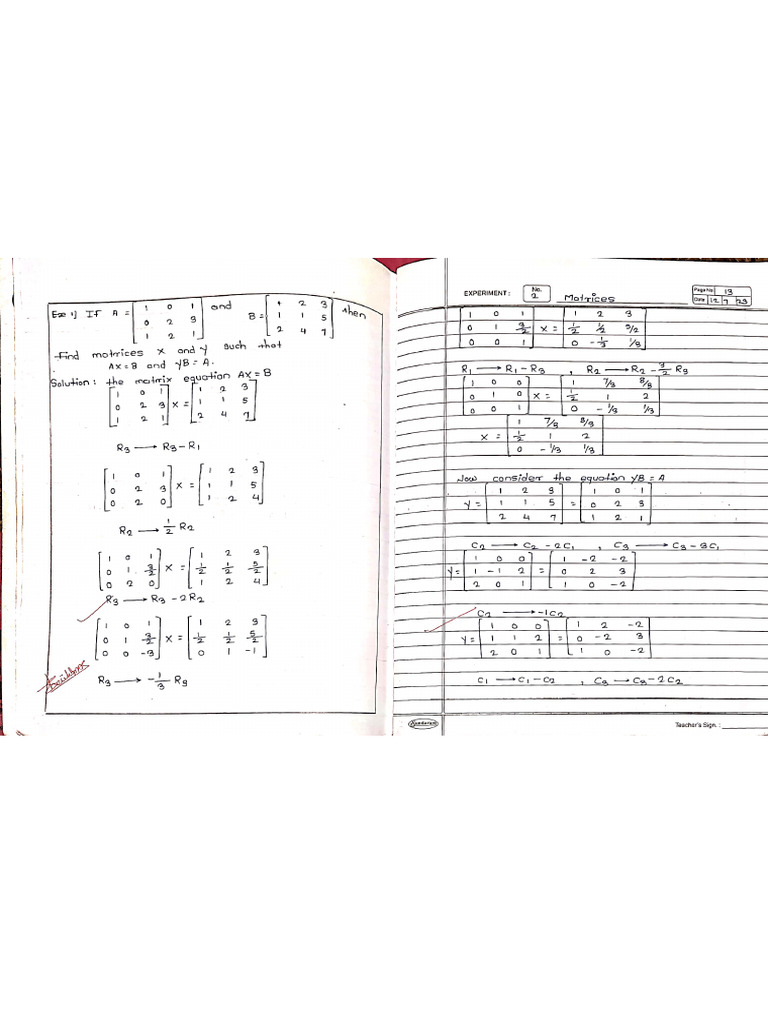 Exe 1) If A = [1 0 1; 0 2 3; 1 2 1] and B = [1 2 3; 1 1 5; 2 4 7] then
find matrices X and Y such that
AX = B and YB = A.
Solution : the matrix equation AX = B
[1 0 1; 0 2 3; 1 2 1] X = [1 2 3; 1 1 5; 2 4 7]
R3 → R3 - R1
[1 0 1; 0 2 3; 0 2 0] X = [1 2 3; 1 1 5; 1 2 4]
R2 → 1/2 R2
[1 0 1; 0 1 3/2; 0 2 0] X = [1 2 3; 1/2 1/2 5/2; 1 2 4]
R3 → R3 - 2R2
[1 0 1; 0 1 3/2; 0 0 -3] X = [1 2 3; 1/2 1/2 5/2; 0 1 -1]
R3 → -1/3 R3
EXPERIMENT :
No.
2
Matrices
Page No. 13
Date 12 7 23
[1 0 1; 0 1 3/2; 0 0 1] X = [1 2 3; 1/2 1/2 5/2; 0 -1/3 1/3]
R1 → R1 - R3 , R2 → R2 - 3/2 R3
[1 0 0; 0 1 0; 0 0 1] X = [1 7/3 8/3; 1/2 1 2; 0 -1/3 1/3]
X = [1 7/3 8/3; 1/2 1 2; 0 -1/3 1/3]
Now consider the equation YB = A
Y = [1 2 3; 1 1 5; 2 4 7] = [1 0 1; 0 2 3; 1 2 1]
C2 → C2 - 2C1 , C3 → C3 - 3C1
Y = [1 0 0; 1 -1 2; 2 0 1] = [1 -2 -2; 0 2 3; 1 0 -2]
C2 → -1C2
Y = [1 0 0; 1 1 2; 2 0 1] = [1 2 -2; 0 -2 3; 1 0 -2]
C1 → C1 - C2 , C3 → C3 - 2C2
Teacher's Sign. :